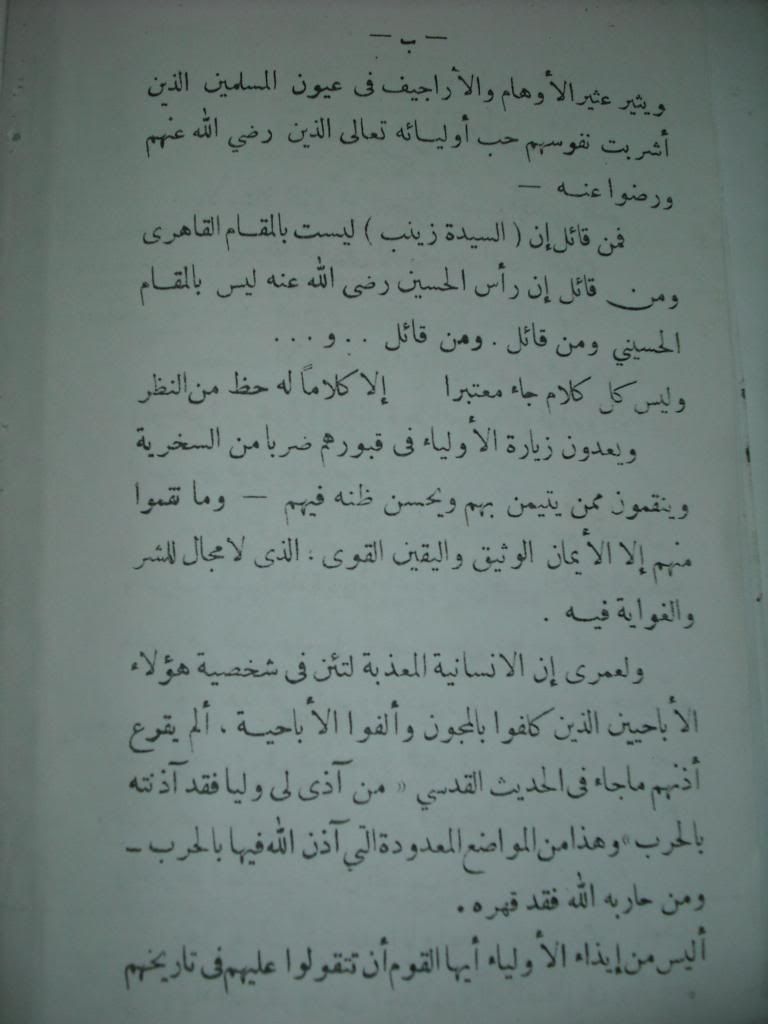 — ب —
ويثير عثير الأوهام والأراجيف فى عيون المسلمين الذين
أشربت نفوسهم حب أوليائه تعالى الذين رضي الله عنهم
ورضوا عنه —
فمن قائل إن ( السيدة زينب ) ليست بالمقام القاهرى
ومن قائل إن رأس الحسين رضى الله عنه ليس بالمقام
الحسيني ومن قائل . ومن قائل . . و . . .
وليس كل كلام جاء معتبرا إلا كلاماً له حظ من النظر
ويعدون زيارة الأولياء فى قبورهم ضربا من السخرية
وينقمون ممن يتيمن بهم ويحسن ظنه فيهم — وما نقموا
منهم إلا الأيمان الوثيق واليقين القوى ، الذى لا مجال للشر
والغواية فيه .
ولعمرى إن الانسانية المعذبة لتئن فى شخصية هؤلاء
الأباحيين الذين كلفوا بالمجون وألفوا الأباحية . ألم يقرع
أذنهم ماجاء فى الحديث القدسي « من آذى لى وليا فقد آذنته
بالحرب » وهذا من المواضع المعدودة التي آذن الله فيها بالحرب —
ومن حاربه الله فقد قهره .
أليس من إيذاء الأولياء أيها القوم أن تتقولوا عليهم فى تاريخهم